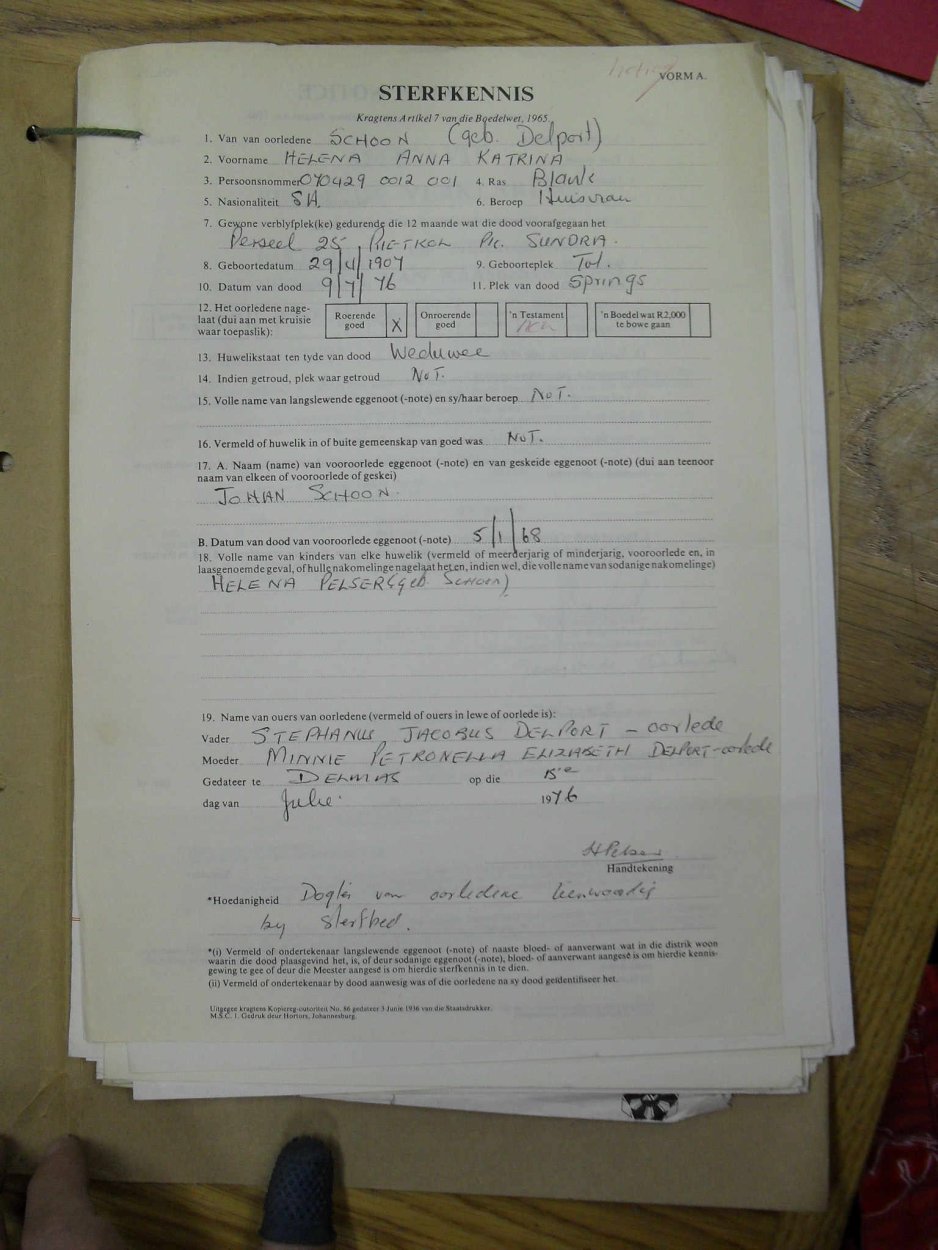 VORM A.
STERFKENNIS
Kragtens Artikel 7 van die Boedelwet, 1965.
1. Van van oorledene SCHOON (geb. Delport)
2. Voorname HELENA ANNA KATRINA
3. Persoonsnommer 070429 0012 001 4. Ras Blank
5. Nasionaliteit SA. 6. Beroep Huisvrou
7. Gewone verblyfplek(ke) gedurende die 12 maande wat die dood voorafgegaan het
Perseel 25, RIETKOL Pk. SUNDRA.
8. Geboortedatum 29/4/1907 9. Geboorteplek Tvl.
10. Datum van dood 9/7/76 11. Plek van dood Springs
12. Het oorledene nage-
laat (dui aan met kruisie
waar toepaslik):
Roerende
goed X
Onroerende
goed
'n Testament
'n Boedel wat R2,000
te bowe gaan
13. Huwelikstaat ten tyde van dood Weduwee
14. Indien getroud, plek waar getroud NVT.
15. Volle name van langslewende eggenoot (-note) en sy/haar beroep NVT.
16. Vermeld of huwelik in of buite gemeenskap van goed was NVT.
17. A. Naam (name) van vooroorlede eggenoot (-note) en van geskeide eggenoot (-note) (dui aan teenoor
naam van elkeen of vooroorlede of geskei)
JOHAN SCHOON.
B. Datum van dood van vooroorlede eggenoot (-note) 5/1/68
18. Volle name van kinders van elke huwelik (vermeld of meerderjarig of minderjarig, vooroorlede en, in
laasgenoemde geval, of hulle nakomelinge nagelaat het en, indien wel, die volle name van sodanige nakomelinge)
HELENA PELSER (geb. SCHOON)
19. Name van ouers van oorledene (vermeld of ouers in lewe of oorlede is):
Vader STEPHANUS JACOBUS DELPORT - oorlede
Moeder MINNIE PETRONELLA ELIZABETH DELPORT-oorlede
Gedateer te DELMAS op die 15e
dag van Julie. 1976
HPelser
Handtekening
*Hoedanigheid Dogter van oorledene teenwoordig
by sterfbed.
*(i) Vermeld of ondertekenaar langslewende eggenoot (-note) of naaste bloed- of aanverwant wat in die distrik woon
waarin die dood plaasgevind het, is, of deur sodanige eggenoot (-note), bloed- of aanverwant aangesê is om hierdie kennis-
gewing te gee of deur die Meester aangesê is om hierdie sterfkennis in te dien.
(ii) Vermeld of ondertekenaar by dood aanwesig was of die oorledene na sy dood geïdentifiseer het.
Uitgegee kragtens Kopiereg-outoriteit No. 86 gedateer 3 Junie 1936 van die Staatsdrukker.
M.S.C. 1. Gedruk deur Hortors, Johannesburg.